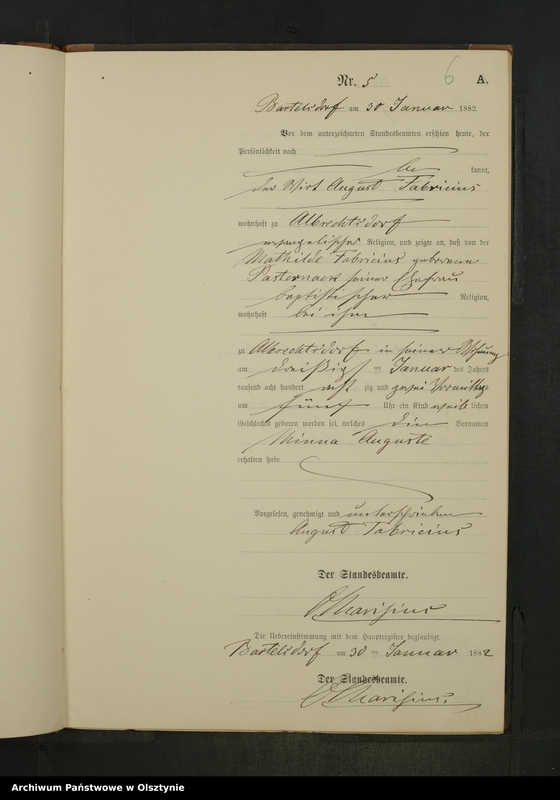 6
Nr. 5 A.
Bartelsdorf am 30 Januar 1882.
Vor dem unterzeichneten Standesbeamten erschien heute, der
Persönlichkeit nach
be kannt,
der Wirt August Fabricius
wohnhaft zu Albrechtsdorf
evangelischer Religion, und zeigte an, daß von der
Mathilde Fabricius geborenen
Pasternack seiner Ehefrau
baptistischer Religion,
wohnhaft bei ihm
zu Albrechtsdorf in seiner Wohnung
am dreißigsten Januar des Jahres
tausend acht hundert acht zig und zwei Vormittags
um fünf Uhr ein Kind weib lichen
Geschlechts geboren worden sei, welches die Vornamen
Minna Auguste
erhalten habe
Vorgelesen, genehmigt und unterschrieben
August Fabricius
Der Standesbeamte.
Die Uebereinstimmung mit dem Hauptregister beglaubigt.
Bartelsdorf am 30 ten Januar 1882
Der Standesbeamte.
Archiwum Państwowe w Olsztynie